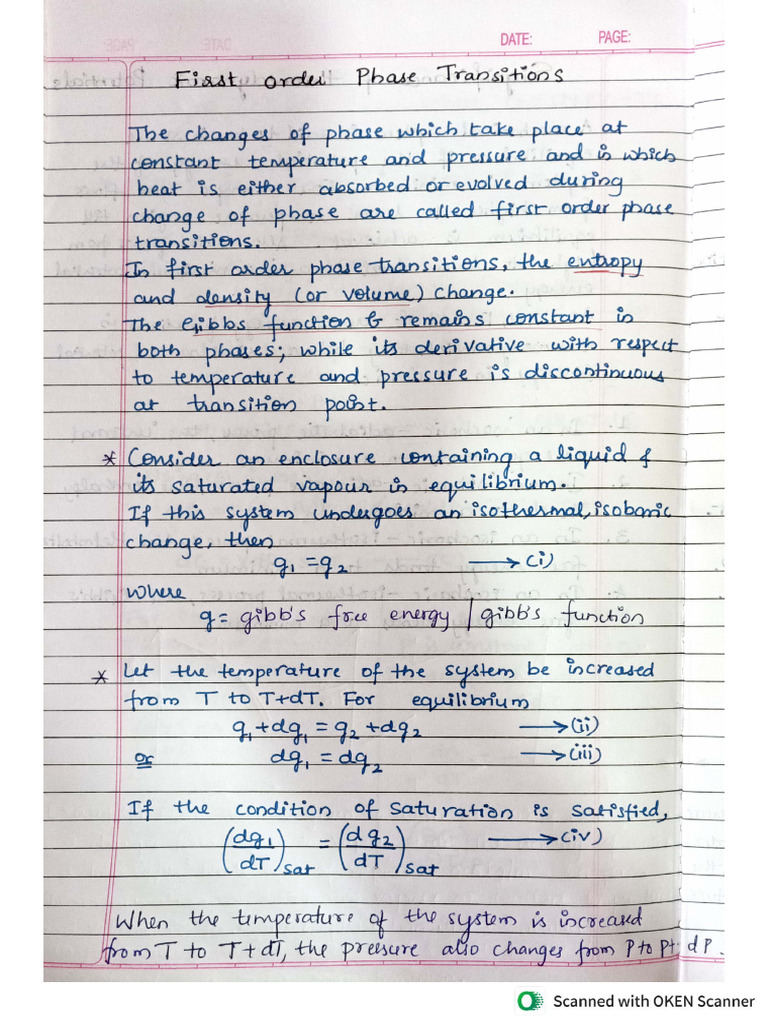 DATE: PAGE:
First order Phase Transitions
The changes of phase which take place at
constant temperature and pressure and in which
heat is either absorbed or evolved during
change of phase are called first order phase
transitions.
In first order phase transitions, the entropy
and density (or volume) change.
The Gibbs function G remains constant in
both phases, while its derivative with respect
to temperature and pressure is discontinuous
at transition point.
* Consider an enclosure containing a liquid &
its saturated vapour in equilibrium.
If this system undergoes an isothermal, isobaric
change, then
g₁ = g₂ ⟶ (i)
where
g = gibb's free energy / gibb's function
* Let the temperature of the system be increased
from T to T+dT. For equilibrium
g₁+dg₁ = g₂+dg₂ ⟶ (ii)
or dg₁ = dg₂ ⟶ (iii)
If the condition of saturation is satisfied,
(dg₁/dT)sat = (dg₂/dT)sat ⟶ (iv)
When the temperature of the system is increased
from T to T+dT, the pressure also changes from P to P+dP.
Scanned with OKEN Scanner